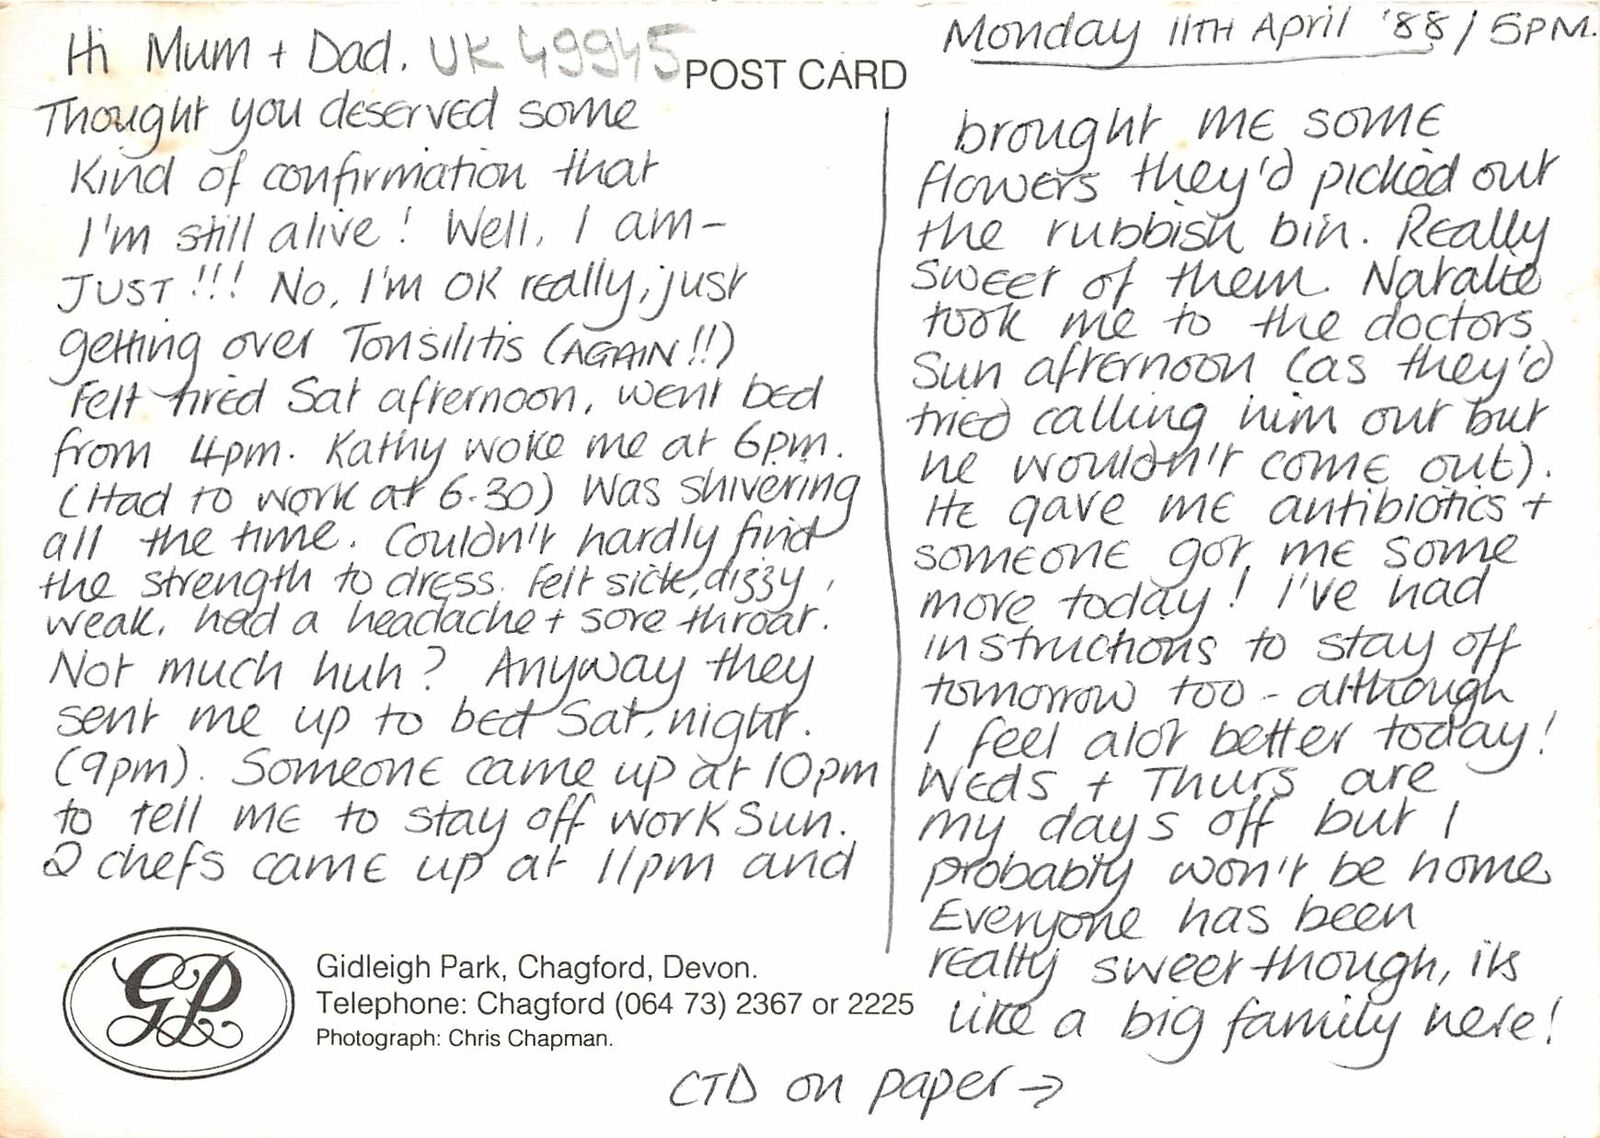 Monday 11TH April '88 / 5PM.
Hi Mum + Dad. UK 49945
POST CARD
Thought you deserved some
kind of confirmation that
I'm still alive! Well, I am-
JUST!!! No, I'm OK really, just
getting over Tonsilitis (AGAIN!!)
Felt tired Sat afternoon, went bed
from 4pm. Kathy woke me at 6pm.
(Had to work at 6.30) Was shivering
all the time. Couldn't hardly find
the strength to dress. Felt sick, dizzy,
weak, had a headache + sore throat.
Not much huh? Anyway they
sent me up to bed Sat, night.
(9pm). Someone came up at 10pm
to tell me to stay off work Sun.
2 chefs came up at 11pm and
brought me some
flowers they'd picked out
the rubbish bin. Really
sweet of them. Natalie
took me to the doctors
Sun afternoon (as they'd
tried calling him out but
he wouldn't come out).
He gave me antibiotics +
someone got me some
more today! I've had
instructions to stay off
tomorrow too - although
I feel alot better today!
Weds + Thurs are
my days off but I
probably won't be home.
Everyone has been
really sweet though, its
like a big family here!
CTD on paper →
GP
Gidleigh Park, Chagford, Devon.
Telephone: Chagford (064 73) 2367 or 2225
Photograph: Chris Chapman.